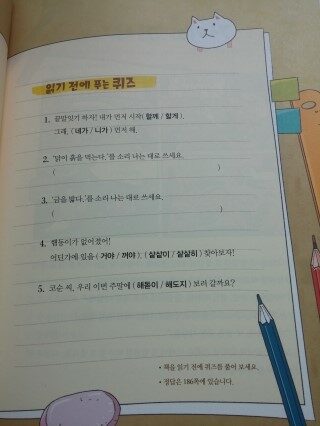 읽기 전에 푸는 퀴즈
1. 끝말잇기 하자! 내가 먼저 시작(할께 / 할게).
그래, (네가 / 니가) 먼저 해.
2. '닭이 흙을 먹는다.'를 소리 나는 대로 쓰세요.
( )
3. '금을 밟다.'를 소리 나는 대로 쓰세요.
( )
4. 쌤통이가 없어졌어!
어딘가에 있을 (거야 / 꺼야). (샅샅이 / 샅샅히) 찾아보자!
5. 코순 씨, 우리 이번 주말에 (해돋이 / 해도지) 보러 갈까요?
• 책을 읽기 전에 퀴즈를 풀어 보세요.
• 정답은 186쪽에 있습니다.